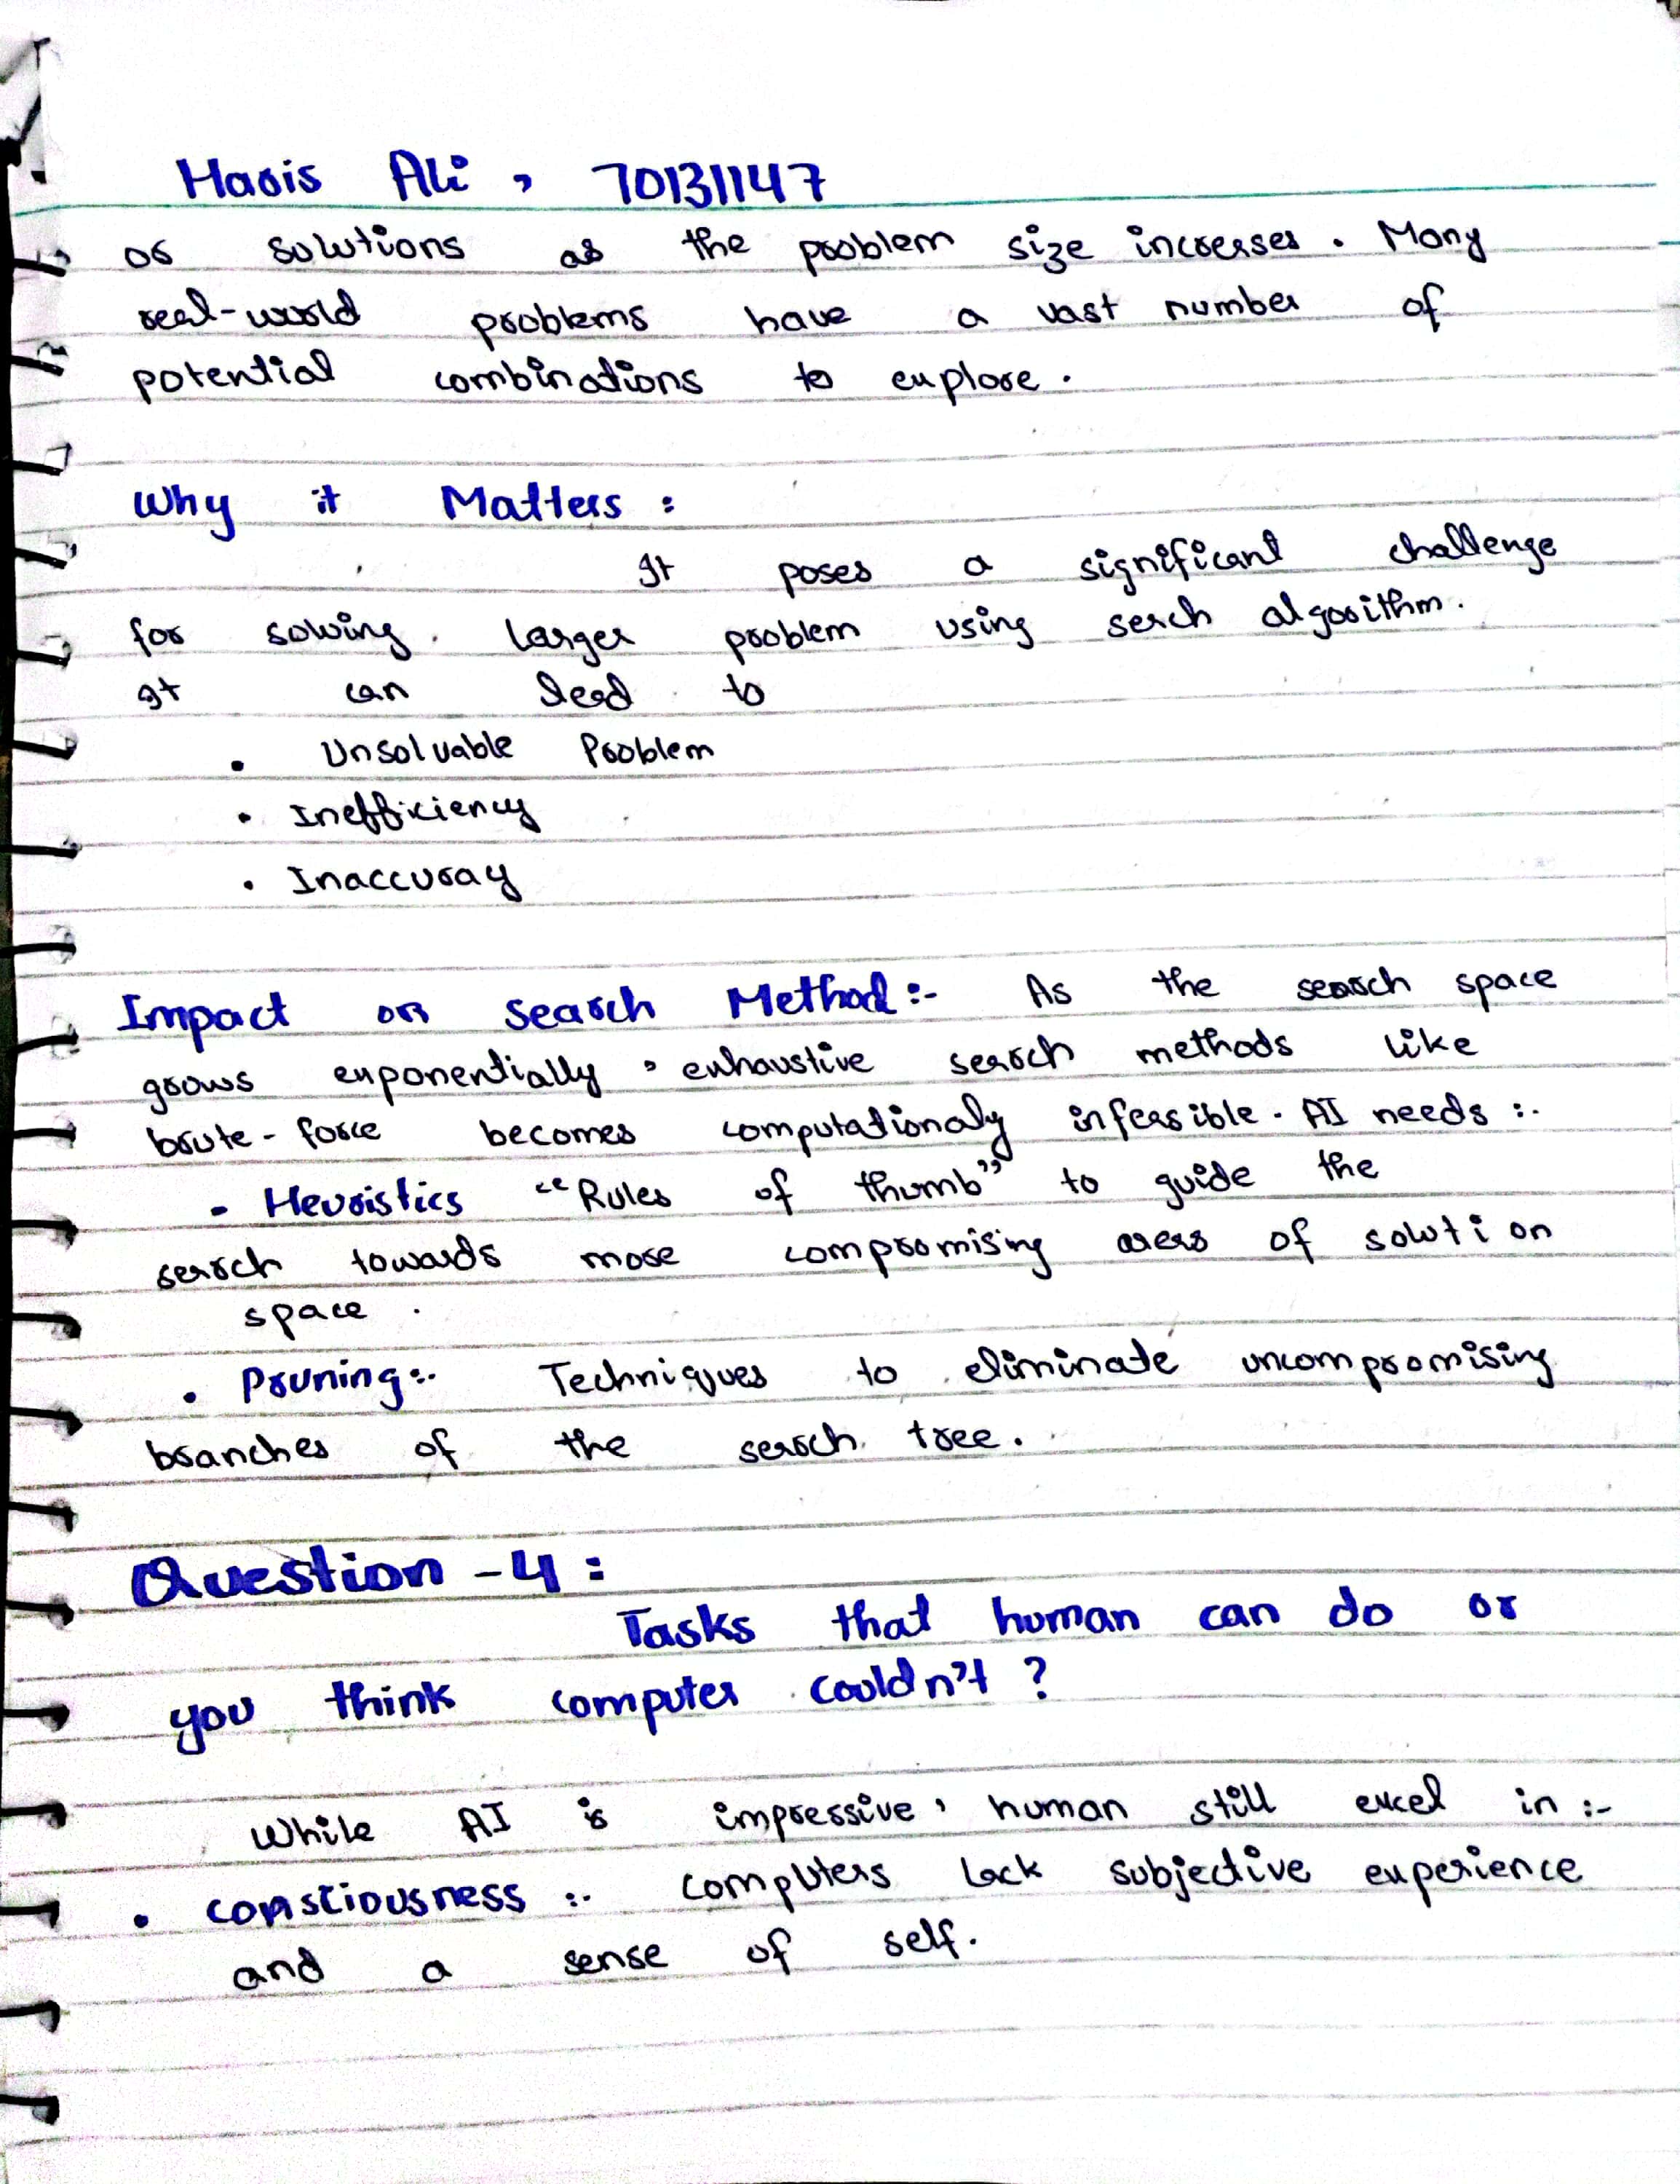 Haris Ali , 70131147
or solutions as the problem size increses . Many
real-world problems have a vast number of
potential combinations to explore .
Why it Matters :
It poses a significant challenge
for solving larger problem using serch algorithm.
It can lead to
• Unsolvable Problem
• Inefficiency
• Inaccuray
Impact on Search Method :- As the search space
grows exponentially , exhaustive serch methods like
brute - force becomes computationaly infessible . AI needs :-
- Heuristics "Rules of thumb" to guide the
serch towards more compromising areas of solution
space .
• Pruning :- Techniques to eliminate uncompromising
branches of the serch tree .
Question - 4 :
Tasks that human can do or
you think computer couldn't ?
While AI is impressive , human still excel in :-
• consciousness :- computers lack subjective experience
and a sense of self.